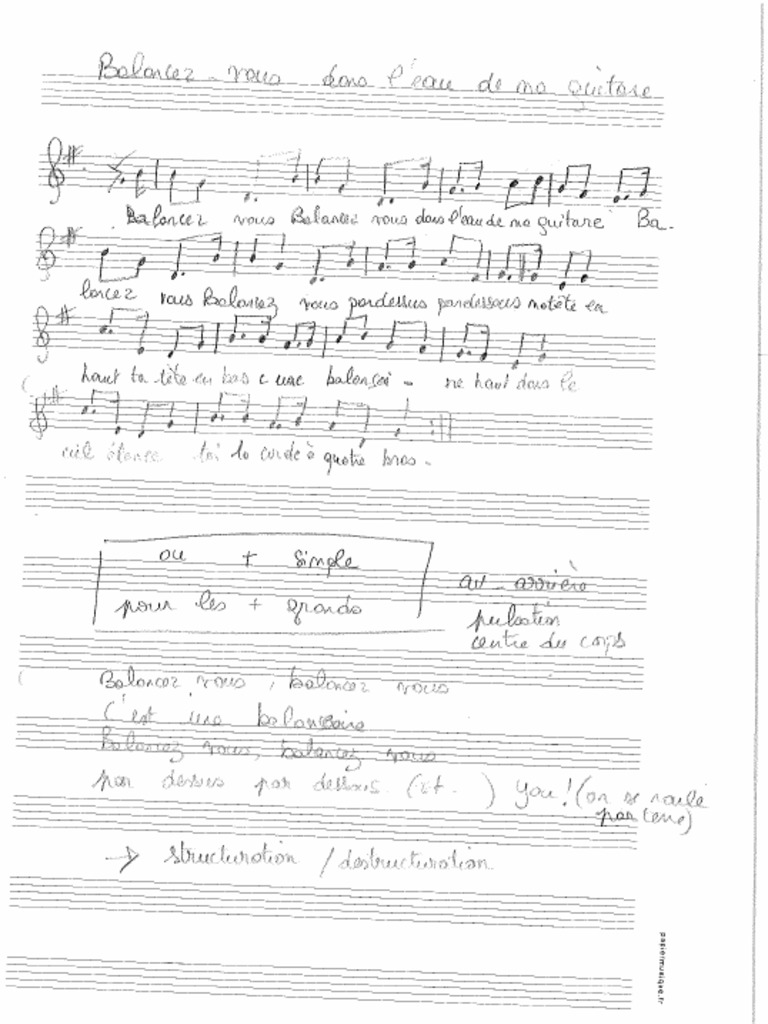 Balancez-vous dans l'eau de ma guitare
Balancez vous Balancez vous dans l'eau de ma guitare Ba-
lancez vous Balancez vous par dessus par dessous ma tête en
haut ta tête en bas c une balançoi - re haut dans le
ciel élance toi la corde à quatre bras.
ou + simple
pour les + grands
av - arrière
pulsation
centre du corps
Balancez vous, balancez vous
C'est une balançoire
Balancez vous, balancez vous
par dessus par dessous (et . ) You! (on se roule
par terre)
→ structuration / destructuration
papiermusique.fr